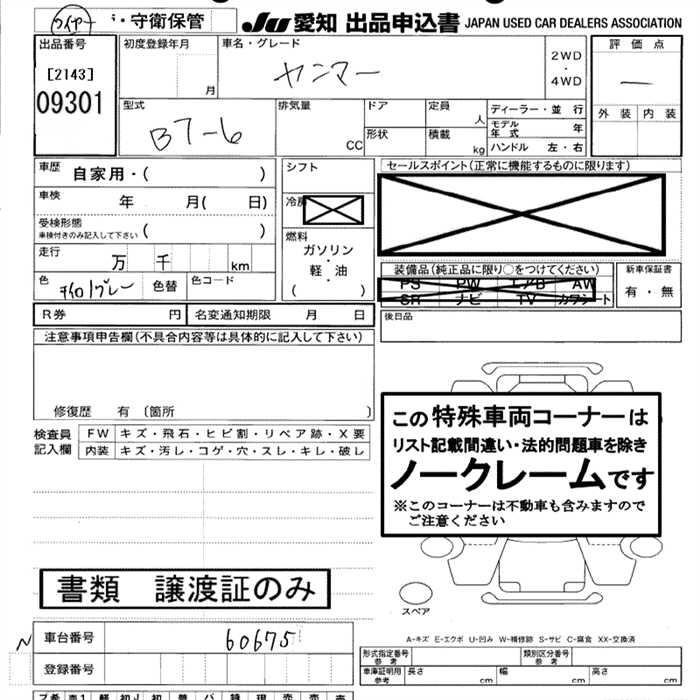 ・守衛保管
JU 愛知 出品申込書 JAPAN USED CAR DEALERS ASSOCIATION
出品番号
[2143]
09301
初度登録年月
月
車名・グレード
ヤンマー
2WD
・
4WD
評価点
ー
外装 内装
型式
B7-6
排気量
CC
ドア
形状
定員
人
積載
kg
ディーラー・並 行
モデル年式 年
ハンドル 左・右
車歴
自家用・( )
車検
年 月( 日)
受検形態
車検付きのみ記入して下さい ( )
走行
万 千 km
色
グレー
色替
色コード
シフト
冷房
燃料
ガソリン
・
軽・油
( )
セールスポイント(正常に機能するものに限ります)
装備品(純正品に限り○をつけてください)
PS PW エアB AW
SR ナビ TV カワシート
新車保証書
有・無
R券 円
名変通知期限 月 日
後日品
注意事項申告欄(不具合内容等は具体的に記入して下さい)
修復歴 有 〔箇所 〕
検査員
記入欄
FW キズ・飛石・ヒビ割・リペア跡・X要
内装 キズ・汚レ・コゲ・穴・スレ・キレ・破レ
この特殊車両コーナーは
リスト記載間違い・法的問題車を除き
ノークレームです
※このコーナーは不動車も含みますので
ご注意ください
書類 譲渡証のみ
スペア
A-キズ E-エクボ U-凹み W-補修跡 S-サビ C-腐食 XX-交換済
N
車台番号
60675
登録番号
形式指定番号
参考
類別区分番号
参考
車庫証明用
参考
長さ cm
幅 cm
高さ cm